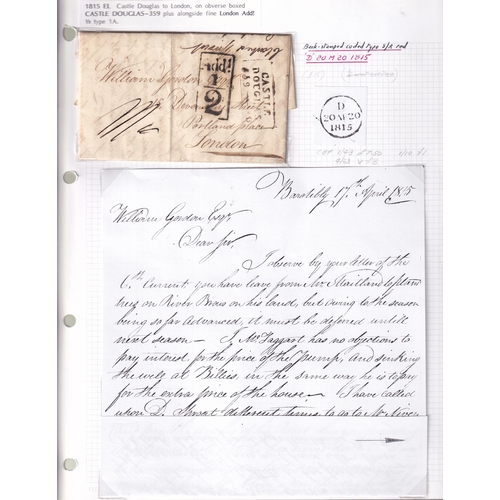 1815 EL. Castle Douglas to London, on obverse boxed
CASTLE DOUGLAS-359 plus alongside fine London Addl
½ type 1A.
Back-stamped coded type S/R red
'D 20 M 20 1815
William Gordon Esqr
Street
Portland place
London
Addl
1
2
CASTLE
DOUG
D
20 AP 20
1815
17th April 1815
William Gordon Esqr
Dear Sir,
I observe by your letter of the
6th Current you have leave from Mr Maitland to plant
trees on River Braes on his land, but owing to the season
being so far Advanced, it must be deferred untill
next season - J. McTaggart has no objections to
pay interest for the price of the pump, and sinking
the well at Billies, in the same way he is to pay
for the extra price of the house - I have called
upon D. different times to go to McNiven